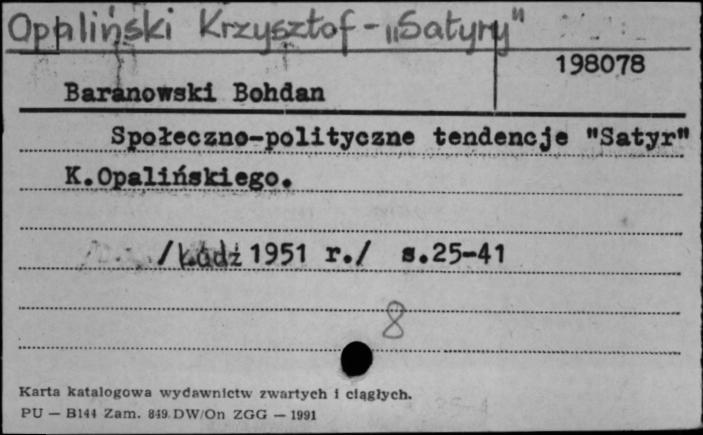 Oppliński Krzysztof - „Satyry"
198078
Baranowski Bohdan
Społeczno-polityczne tendencje "Satyr"
K.Opalińskiego.
/Łódź 1951 r./ s.25-41
8
Karta katalogowa wydawnictw zwartych i ciągłych.
PU — B144 Zam. 849 DW/On ZGG — 1991